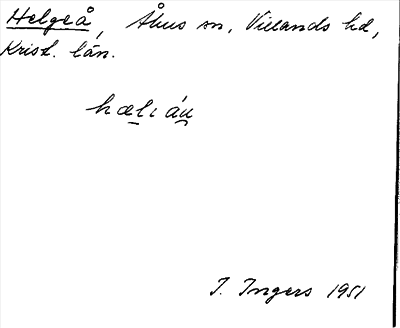 Helgeå, Åhus sn, Villands hd,
Krist. län.
hælıáu
I. Ingers 1951